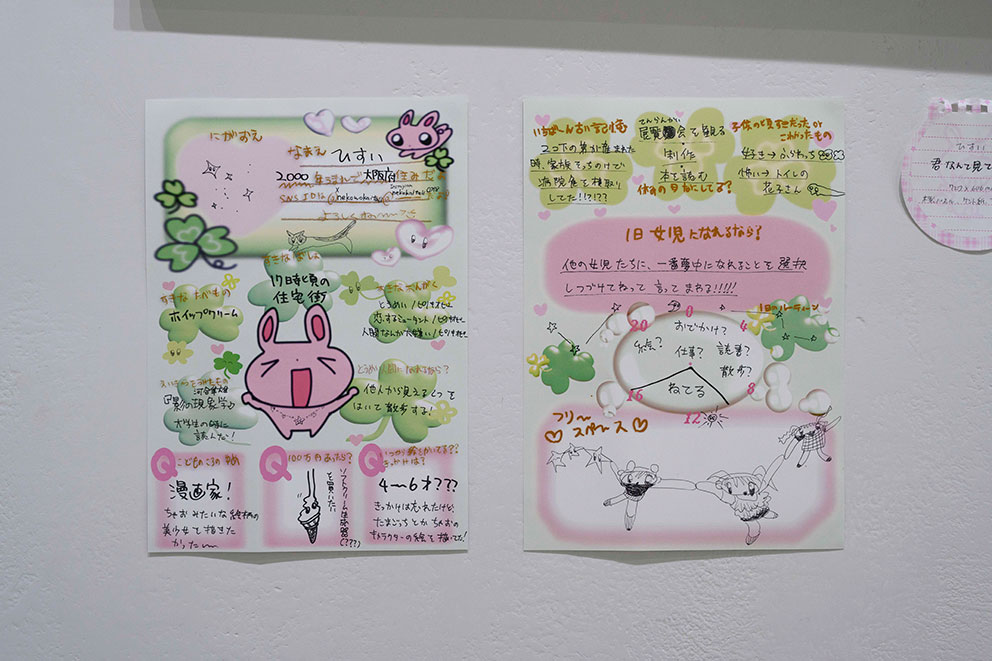 にがおえ
なまえ ひすい
2000 年うまれで 大阪府 住みだよ
SNS IDは
よろしくね〜
すきな ばしょ
17時頃の
住宅街
すきな たべもの
ホイップクリーム
すきな おんがく
とうめい/ピノキオピー
恋するミュータント/ピノキオピー
人間なんか大嫌い/ピノキオピー
河合隼雄
『影の現象学』
大学生の時に
読んだ!
とうめい人間になれるなら?
他人から見えるくつを
はいて散歩する!
Q こどものころの夢
漫画家!
ちゃおみたいな絵柄の
美少女を描きた
かった〜
Q 100万円あったら?
ソフトクリーム生成器
を買いたい
(???)
Q いつから絵をかいてる??
きっかけは?
4〜6才???
きっかけは忘れたけど、
たまごっちとかちゃおの
キャラクターの絵を描いてた!
いちば〜ん古い記憶
2コ下の弟が産まれた
時、家族そっちのけで
病院食を横取り
してた!!?!??
てんらんかい
展覧会を観る
制作
本を読む
休みの日なにしてる?
子供の頃好きだった or
こわかったもの
好き→ふらわっち
怖い→トイレの
花子さん
1日女児になれるなら?
他の女児たちに、一番夢中になれることを選択
しつづけてねって言ってまわる!!!!!
1日のルーティーン
0
4
8
12
16
20
おでかけ?
絵?
仕事?
読書?
散歩?
ねてる
フリ〜
スペ〜ス
ひすい
君なんで見て